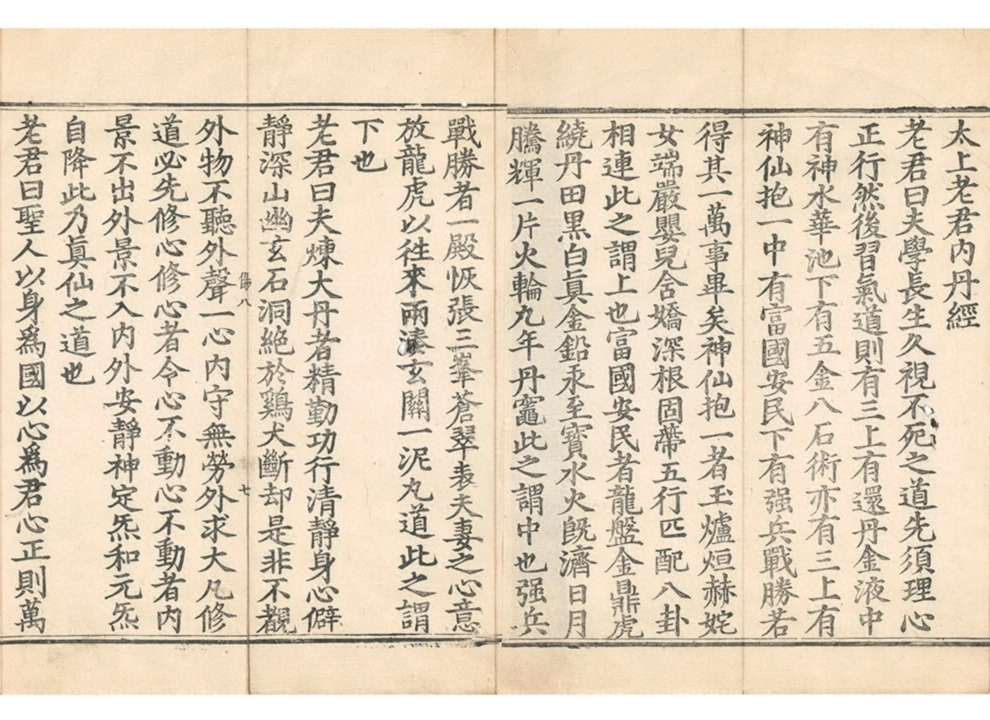 太上老君內丹經
老君曰夫學長生久視不死之道先須理心
正行然後習氣道則有三上有還丹金液中
有神水華池下有五金八石術亦有三上有
神仙抱一中有富國安民下有强兵戰勝若
得其一萬事畢矣神仙抱一者玉爐烜赫姹
女端嚴嬰兒含嬌深根固蔕五行匹配八卦
相連此之謂上也富國安民者龍盤金鼎虎
繞丹田黑白眞金鉛汞至寶水火旣濟日月
騰輝一片火輪九年丹竈此之謂中也强兵
戰勝者一殿恢張三峯蒼翠表夫妻之心意
放龍虎以往來兩湊玄關一泥丸道此之謂
下也
老君曰夫煉大丹者精勤功行清靜身心僻
靜深山幽玄石洞絕於鷄犬斷却是非不覩
傷八 七
外物不聽外聲一心內守無勞外求大凡修
道必先修心修心者令心不動心不動者內
景不出外景不入內外安靜神定炁和元炁
自降此乃眞仙之道也
老君曰聖人以身爲國以心爲君心正則萬